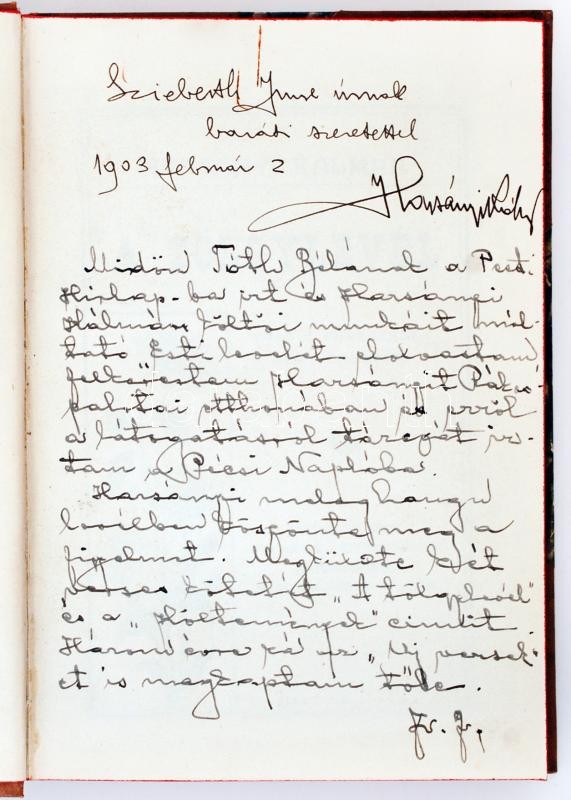 Szieberth Imre úrnak
baráti szeretettel
1903 február 2
Harsányi Kálm
Midőn Tóth Bélának a Pesti
Hirlap-ba irt és Harsányi
Kálmán költői munkáit mél-
tató Esti levelét elolvastam
felkerestem Harsányit Rákos-
palotai otthonában és erről
a látogatásról tárcát ir-
tam a Pécsi Naplóba.
Harsányi meleg hangú
levélben köszönte meg a
figyelmet. Megküldte két
verses kötetét "A tölgylevél"
és a "Költemények" cimüt.
Három évre rá az "Uj versek"-
et is megkaptam tőle.